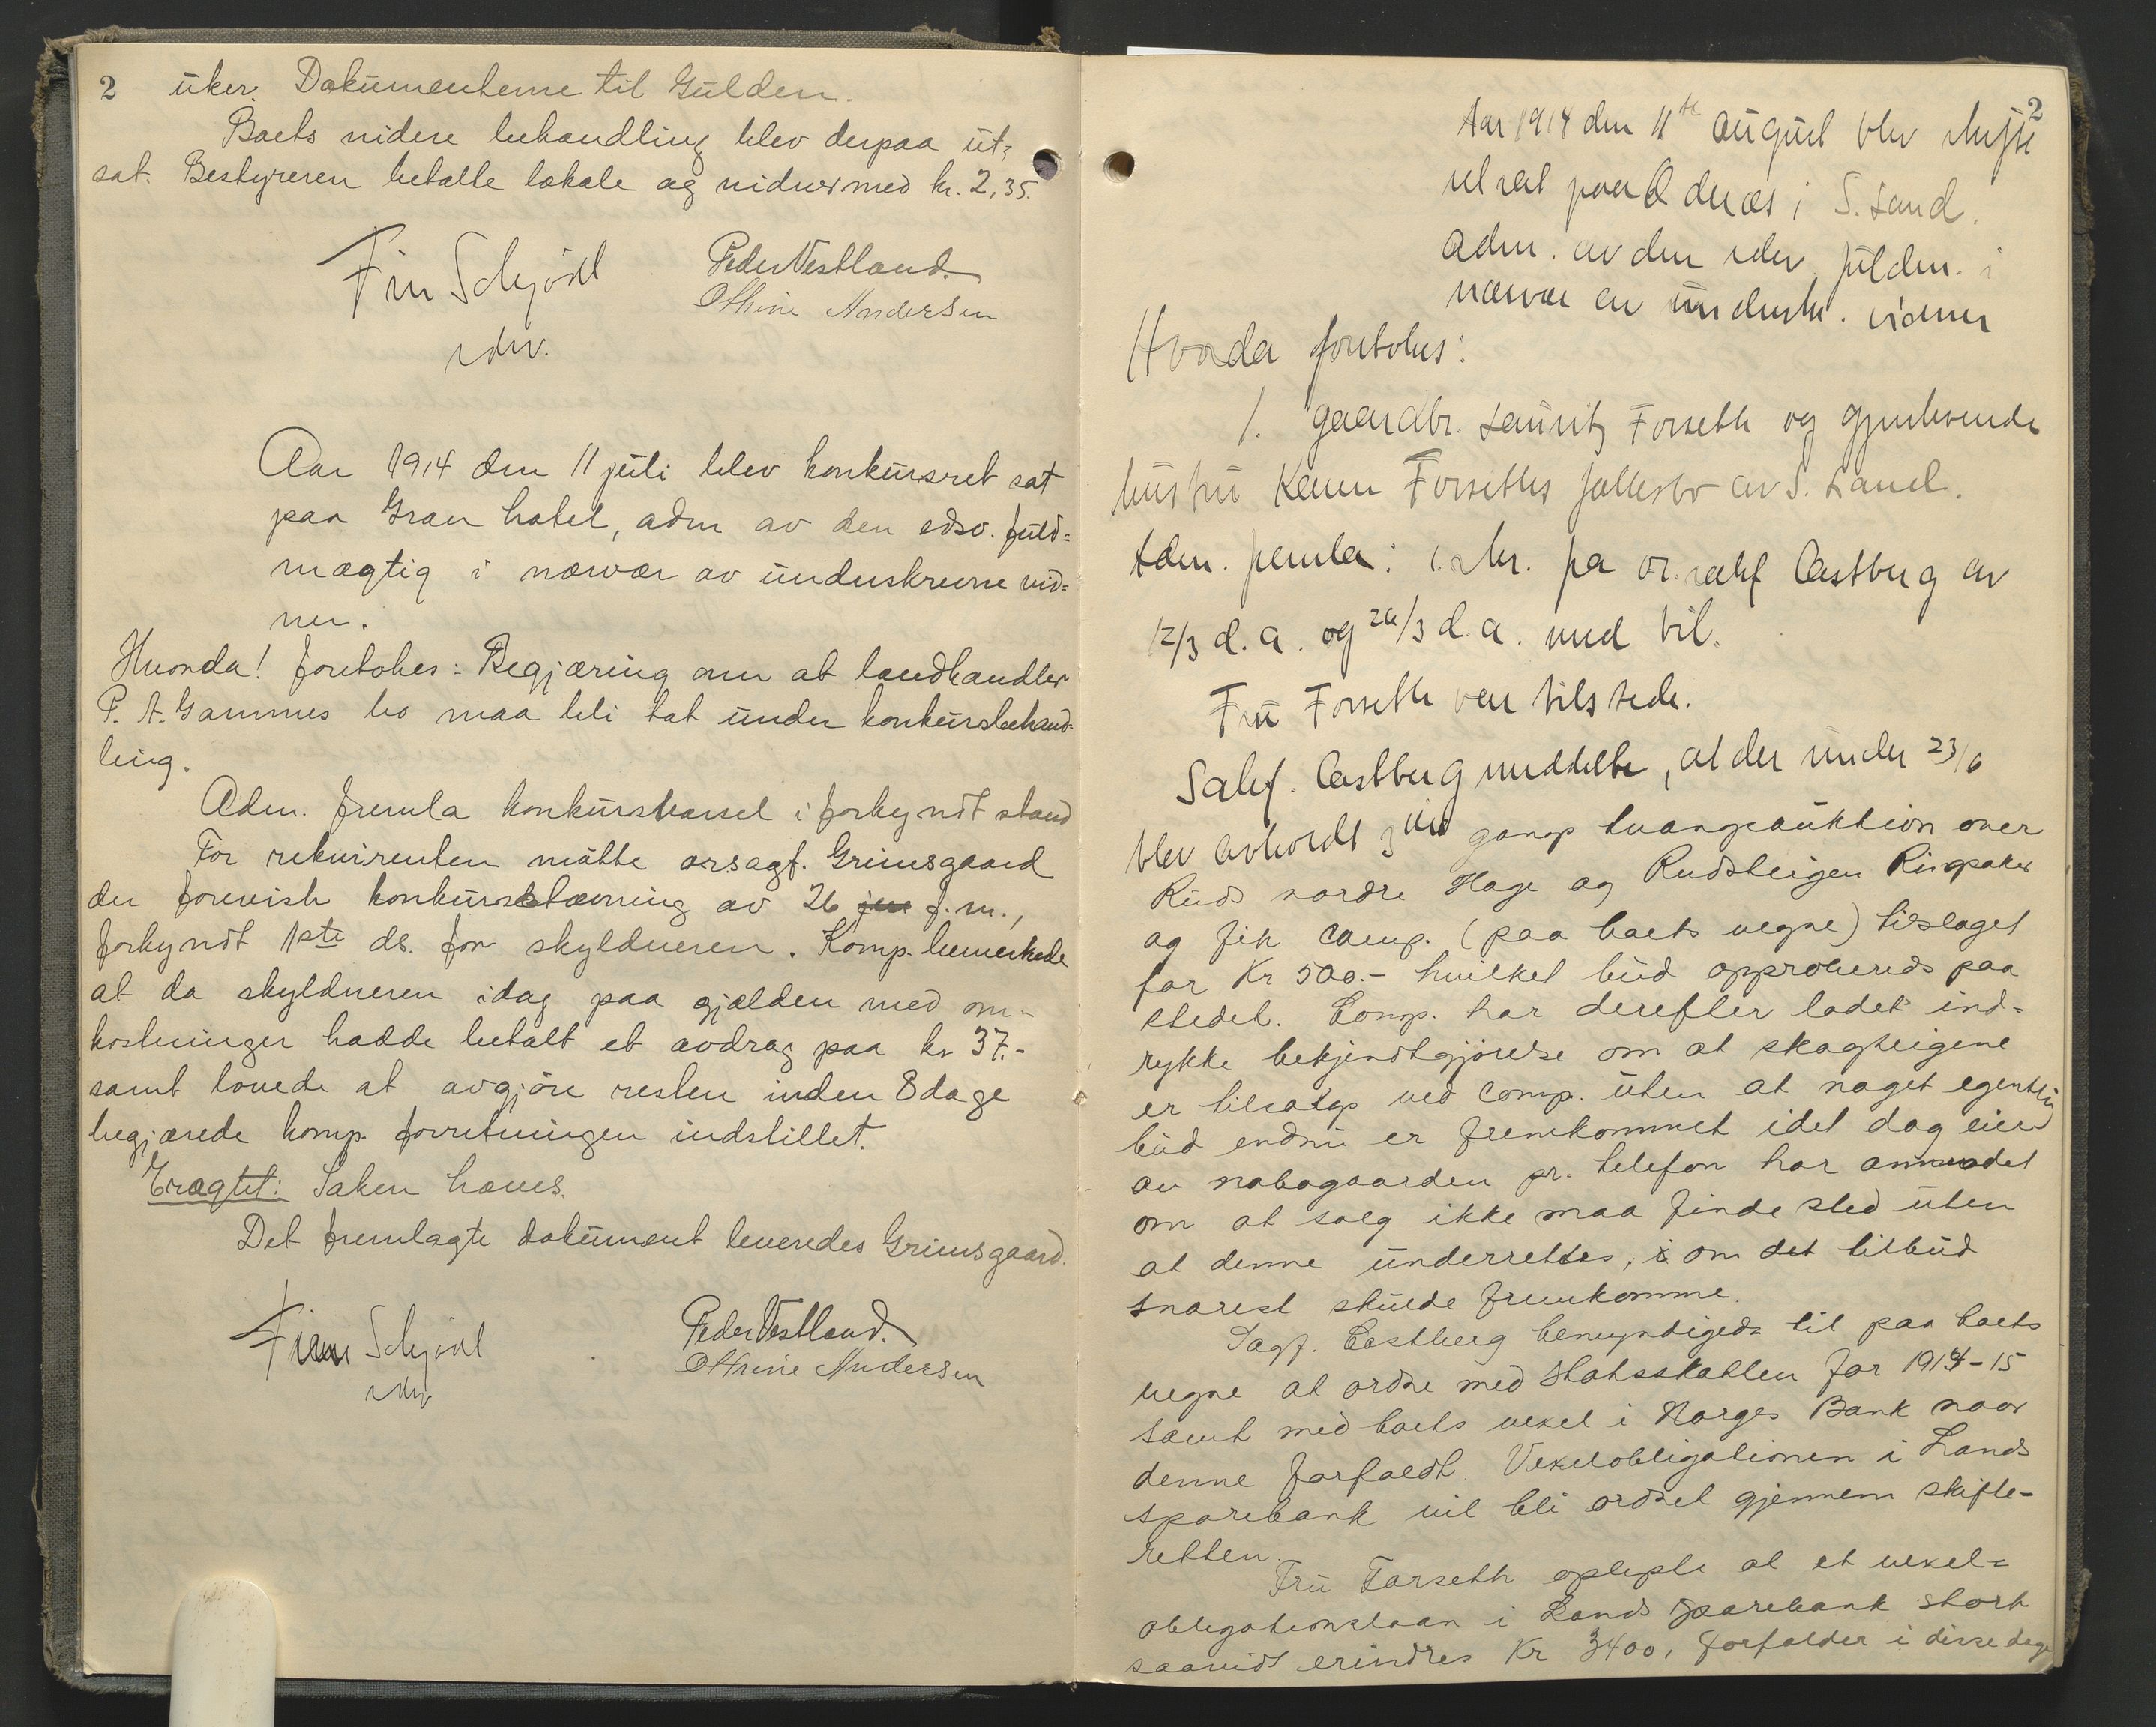 2 uker. Dokumenterne til Gulden.
Boets videre behandling blev derpaa ut=
sat. Bestyreren betalte lokale og vidner med kr. 2,35.
Finn Schjödt Peder Vestland.
edsv. Othine Andersen
Aar 1914 den 11 juli blev konkursret sat
paa Gran hotel, adm av den edsv. fuld=
mægtig i nærvær av underskrevne vid=
ner.
Hvorda! foretokes: Begjæring om at landhandler
P. A. Gammes bo maa bli tat under konkursbehand=
ling.
Adm. fremla konkursvarsel i forkyndt stand
For rekvirenten møtte orsagf. Grimsgaard
der foreviste konkursstævning av 26 f.m.,
forkyndt 1ste ds. for skyldneren. Komp. bemerkede
at da skyldneren idag paa gjælden med om-
kostninger hadde betalt et avdrag paa kr 37.-
samt lovede at avgjøre resten inden 8 dage
begjærede komp. forretningen indstillet.
Eragtet: Saken hæves.
Det fremlagte dokument leveredes Grimsgaard.
Finn Schjödt Peder Vestland.
edsv Othine Andersen
2
Aar 1914 den 11te august blev skifte
ret sat paa Odnæs i S. Land.
Adm. av den edsv. fuldm. i
nærvær av underskr. vidner
Hvorda foretokes:
1. Gaardbr. Lauritz Forseth og gjenlevende
hustru Karen Forseths fællesbo av S. Land.
Adm. fremla: skr. fra or.sakf Castberg av
12/3 d.a. og 26/3 d.a. med bil.
Fru Forseth var tilstede.
Sakf. Castberg meddelte, at der under 23/6
blev avholdt 3die gangs tvangsauktion over
Ruds nordre Hage og Rudsteigen Ringsaker
og fik comp. (paa boets vegne) tilslaget
for Kr 500.- hvilket bud approberedes paa
stedet. Comp. har derefter ladet ind-
rykke bekjendtgjørelse om at skogteigene
er tilsalgs ved comp. uten at noget egentlig
bud endnu er fremkommet idet dog eier
av nabogaarden pr. telefon har anmodet
om at salg ikke maa finde sted uten
at denne underrettes, om det tilbud
snarest skulde fremkomme.
Sagf. Castberg bemyndigedes til paa boets
vegne at ordne med statsskatten for 1914-15
samt med boets vexel i Norges Bank naar
denne forfaldt. Vexelobligationen i Lands
sparebank vil bli ordnet gjennem skifte-
retten.
Fru Forseth oplyste at et vexel=
obligationslaan i Lands sparebank stort
saavidt erindres Kr 3400, forfalder i disse dage